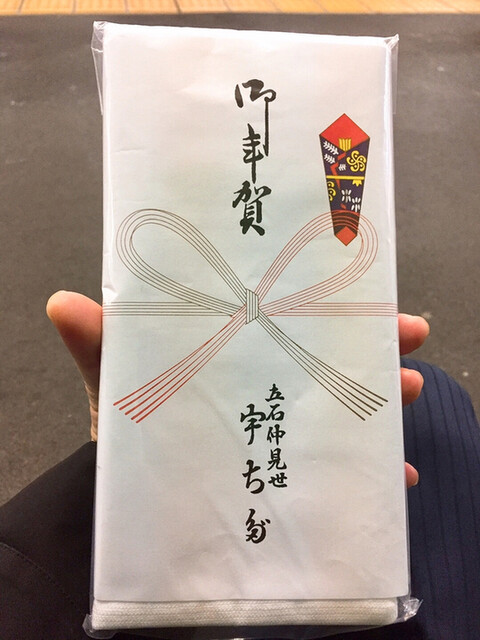 御年賀
立石仲見世
宇ち多゛